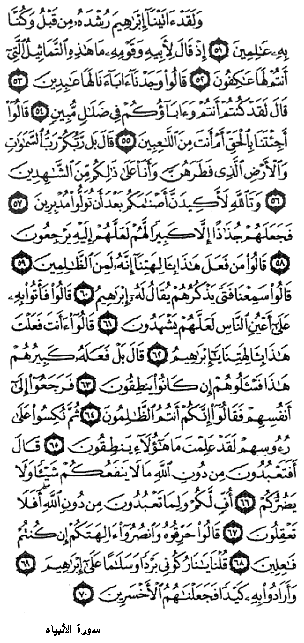 وَلَقَدْ ءَاتَيْنَآ إِبْرَٰهِيمَ رُشْدَهُۥ مِن قَبْلُ وَكُنَّا
بِهِۦ عَٰلِمِينَ ٥١ إِذْ قَالَ لِأَبِيهِ وَقَوْمِهِۦ مَا هَٰذِهِ ٱلتَّمَاثِيلُ ٱلَّتِىٓ
أَنتُمْ لَهَا عَٰكِفُونَ ٥٢ قَالُوا۟ وَجَدْنَآ ءَابَآءَنَا لَهَا عَٰبِدِينَ ٥٣
قَالَ لَقَدْ كُنتُمْ أَنتُمْ وَءَابَآؤُكُمْ فِى ضَلَٰلٍ مُّبِينٍ ٥٤ قَالُوٓا۟
أَجِئْتَنَا بِٱلْحَقِّ أَمْ أَنتَ مِنَ ٱللَّٰعِبِينَ ٥٥ قَالَ بَل رَّبُّكُمْ رَبُّ ٱلسَّمَٰوَٰتِ
وَٱلْأَرْضِ ٱلَّذِى فَطَرَهُنَّ وَأَنَا۠ عَلَىٰ ذَٰلِكُم مِّنَ ٱلشَّٰهِدِينَ
٥٦ وَتَٱللَّهِ لَأَكِيدَنَّ أَصْنَٰمَكُم بَعْدَ أَن تُوَلُّوا۟ مُدْبِرِينَ ٥٧
فَجَعَلَهُمْ جُذَٰذًا إِلَّا كَبِيرًا لَّهُمْ لَعَلَّهُمْ إِلَيْهِ يَرْجِعُونَ
٥٨ قَالُوا۟ مَن فَعَلَ هَٰذَا بِـَٔالِهَتِنَآ إِنَّهُۥ لَمِنَ ٱلظَّٰلِمِينَ ٥٩
قَالُوا۟ سَمِعْنَا فَتًى يَذْكُرُهُمْ يُقَالُ لَهُۥٓ إِبْرَٰهِيمُ ٦٠ قَالُوا۟ فَأْتُوا۟ بِهِۦ
عَلَىٰٓ أَعْيُنِ ٱلنَّاسِ لَعَلَّهُمْ يَشْهَدُونَ ٦١ قَالُوٓا۟ ءَأَنتَ فَعَلْتَ
هَٰذَا بِـَٔالِهَتِنَا يَٰٓإِبْرَٰهِيمُ ٦٢ قَالَ بَلْ فَعَلَهُۥ كَبِيرُهُمْ
هَٰذَا فَسْـَٔلُوهُمْ إِن كَانُوا۟ يَنطِقُونَ ٦٣ فَرَجَعُوٓا۟ إِلَىٰٓ
أَنفُسِهِمْ فَقَالُوٓا۟ إِنَّكُمْ أَنتُمُ ٱلظَّٰلِمُونَ ٦٤ ثُمَّ نُكِسُوا۟ عَلَىٰ
رُءُوسِهِمْ لَقَدْ عَلِمْتَ مَا هَٰٓؤُلَآءِ يَنطِقُونَ ٦٥ قَالَ
أَفَتَعْبُدُونَ مِن دُونِ ٱللَّهِ مَا لَا يَنفَعُكُمْ شَيْـًٔا وَلَا
يَضُرُّكُمْ ٦٦ أُفٍّ لَّكُمْ وَلِمَا تَعْبُدُونَ مِن دُونِ ٱللَّهِ أَفَلَا
تَعْقِلُونَ ٦٧ قَالُوا۟ حَرِّقُوهُ وَٱنصُرُوٓا۟ ءَالِهَتَكُمْ إِن كُنتُمْ
فَٰعِلِينَ ٦٨ قُلْنَا يَٰنَارُ كُونِى بَرْدًا وَسَلَٰمًا عَلَىٰٓ إِبْرَٰهِيمَ ٦٩
وَأَرَادُوا۟ بِهِۦ كَيْدًا فَجَعَلْنَٰهُمُ ٱلْأَخْسَرِينَ ٧٠
سورة الأنبياء